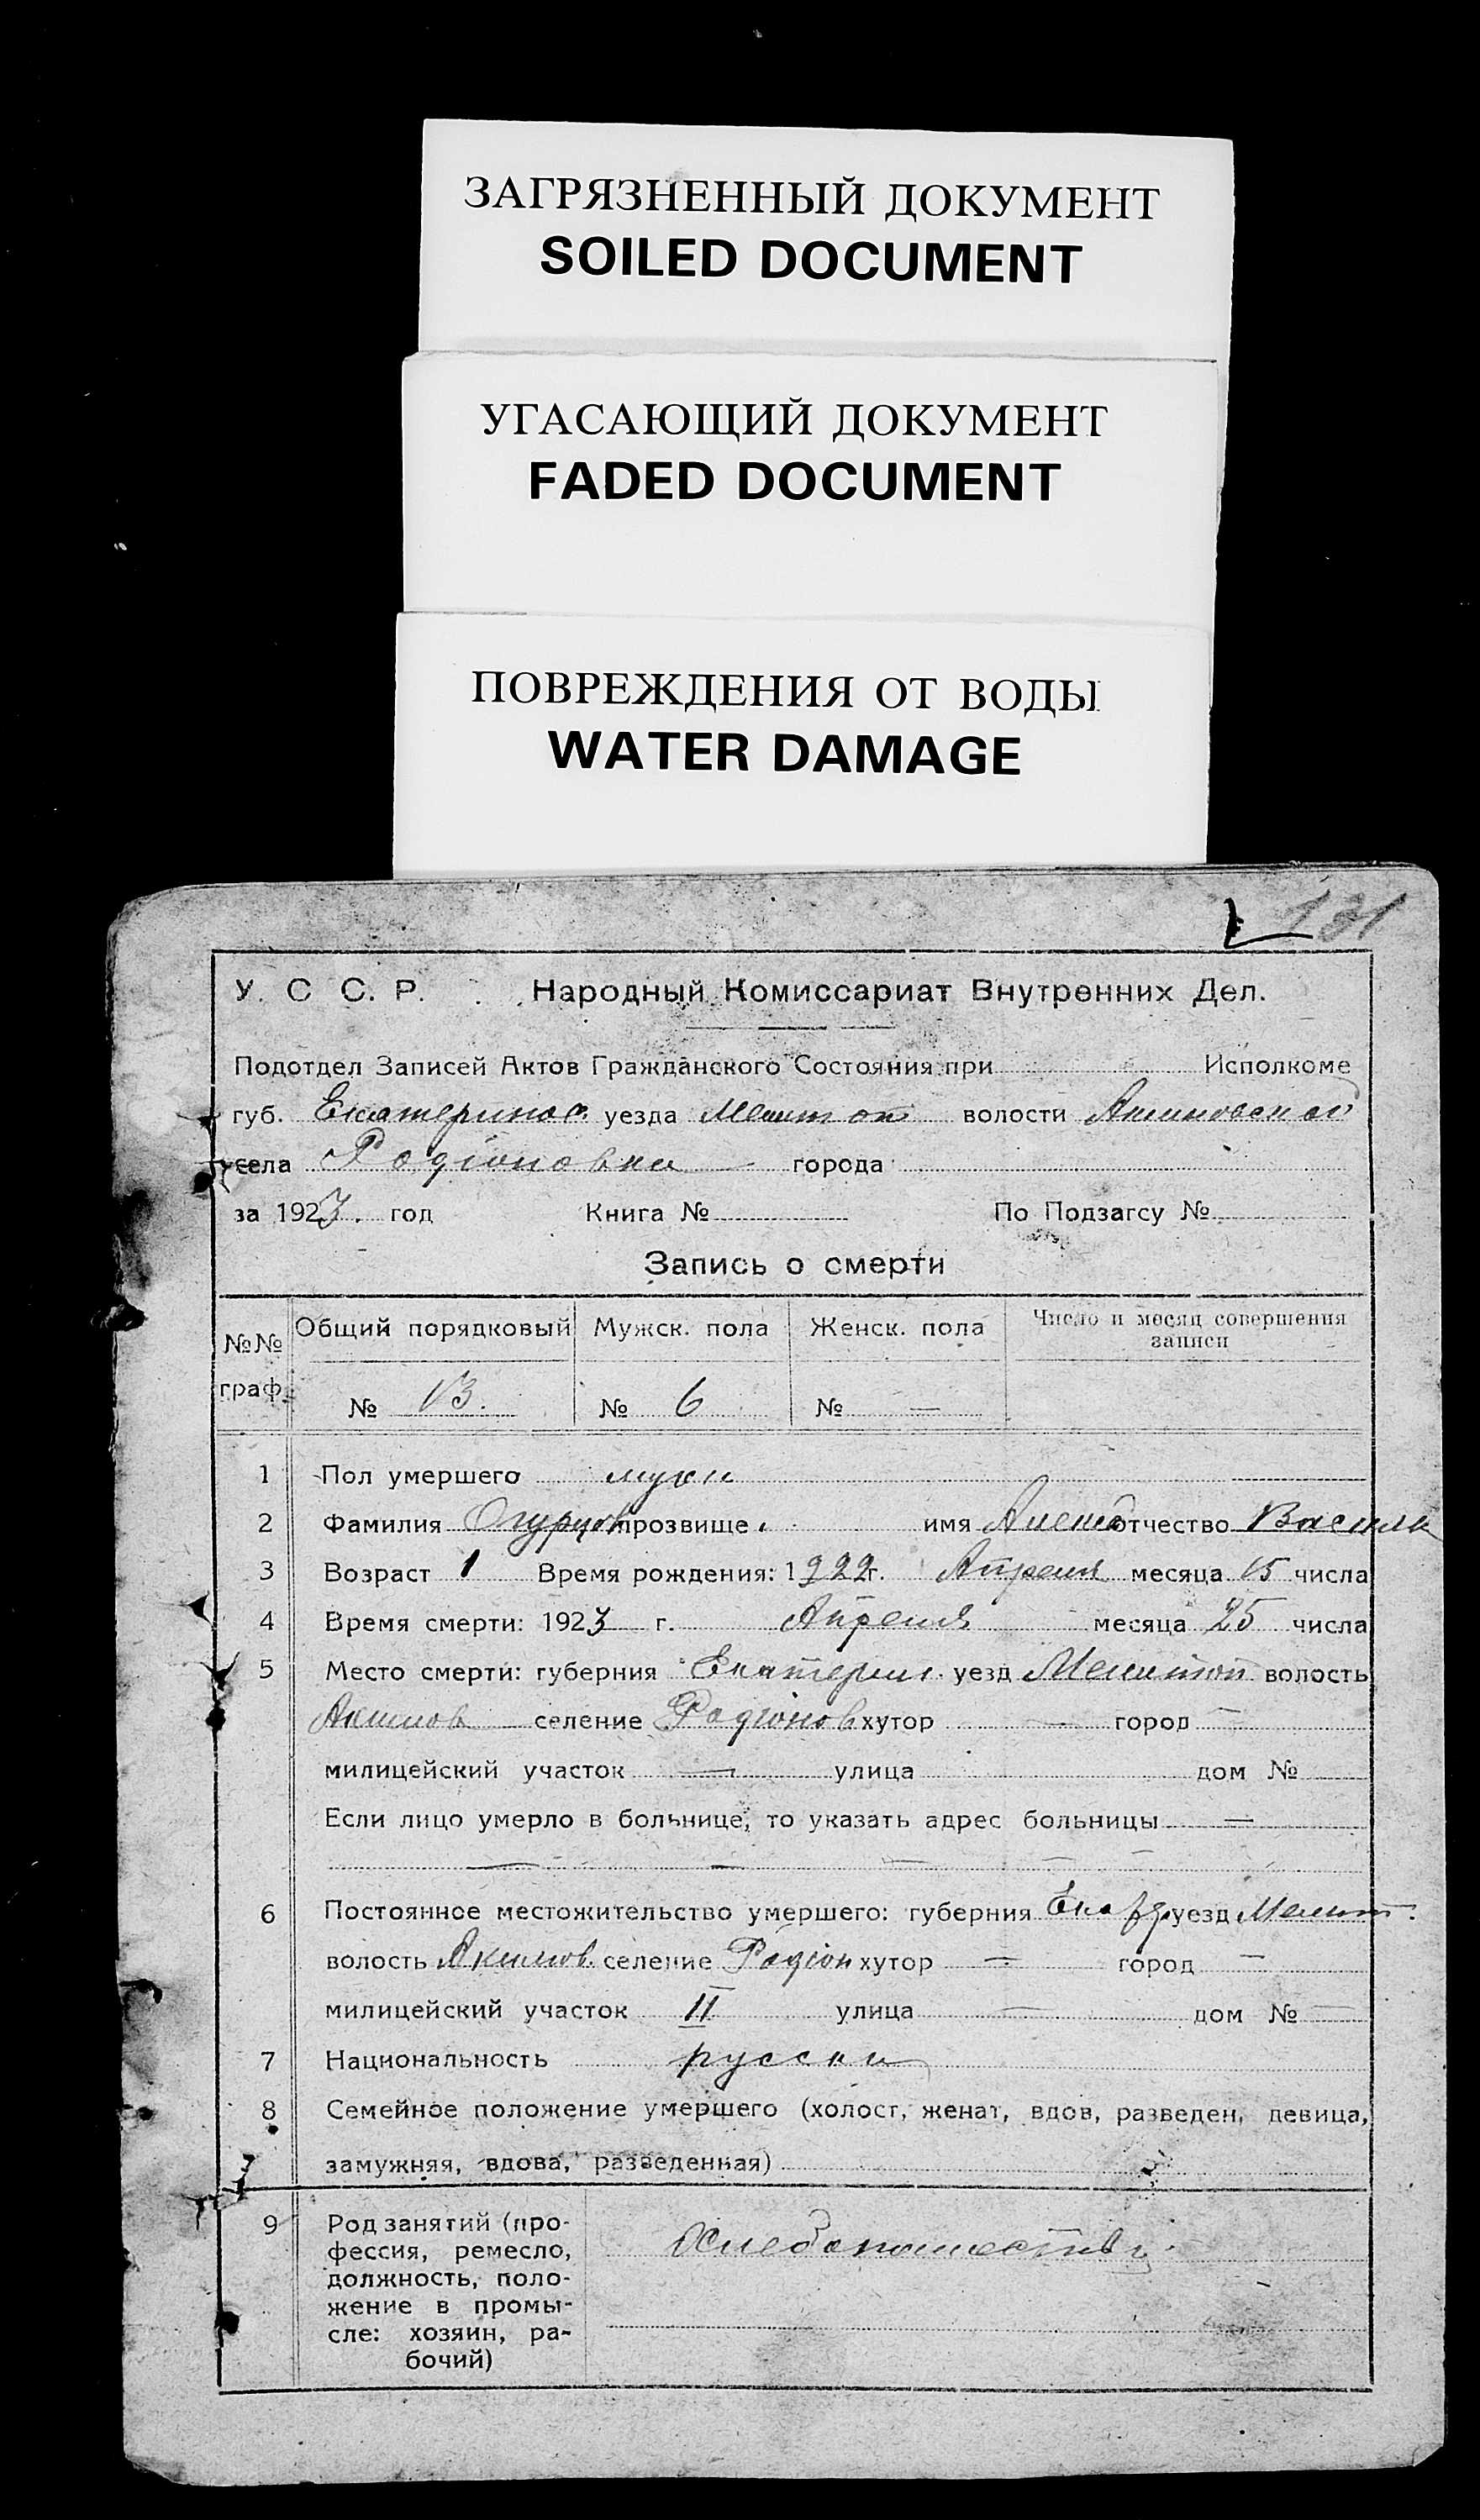 ЗАГРЯЗНЕННЫЙ ДОКУМЕНТ
SOILED DOCUMENT
УГАСАЮЩИЙ ДОКУМЕНТ
FADED DOCUMENT
ПОВРЕЖДЕНИЯ ОТ ВОДЫ
WATER DAMAGE
131
У. С. С. Р. Народный Комиссариат Внутренних Дел.
Подотдел Записей Актов Гражданского Состояния при Исполкоме
губ. Екатеринос. уезда Мелитоп волости Акимовской
села Родіоновки города
за 1923. год Книга № По Подзагсу №
Запись о смерти
№№ граф. Общий порядковый Мужск. пола Женск. пола Число и месяц совершения записи
№ 13. № 6 № —
1 Пол умершего мужи
2 Фамилия Огурцов прозвище имя отчество Василь
3 Возраст 1 Время рождения: 1922 г. Апреля месяца 15 числа
4 Время смерти: 1923 г. Апреля месяца 25 числа
5 Место смерти: губерния Екатерин. уезд Мелитоп волость
Акимов селение Родіонов хутор — город —
милицейский участок — улица дом №
Если лицо умерло в больнице, то указать адрес больницы —
— — — — —
6 Постоянное местожительство умершего: губерния уезд Мелит.
волость Акимов. селение Родіон хутор — город —
милицейский участок II улица — дом № —
7 Национальность русски
8 Семейное положение умершего (холост, женат, вдов, разведен, девица,
замужняя, вдова, разведенная)
9 Род занятий (про-
фессия, ремесло,
должность, поло-
жение в промы-
сле: хозяин, ра-
бочий)